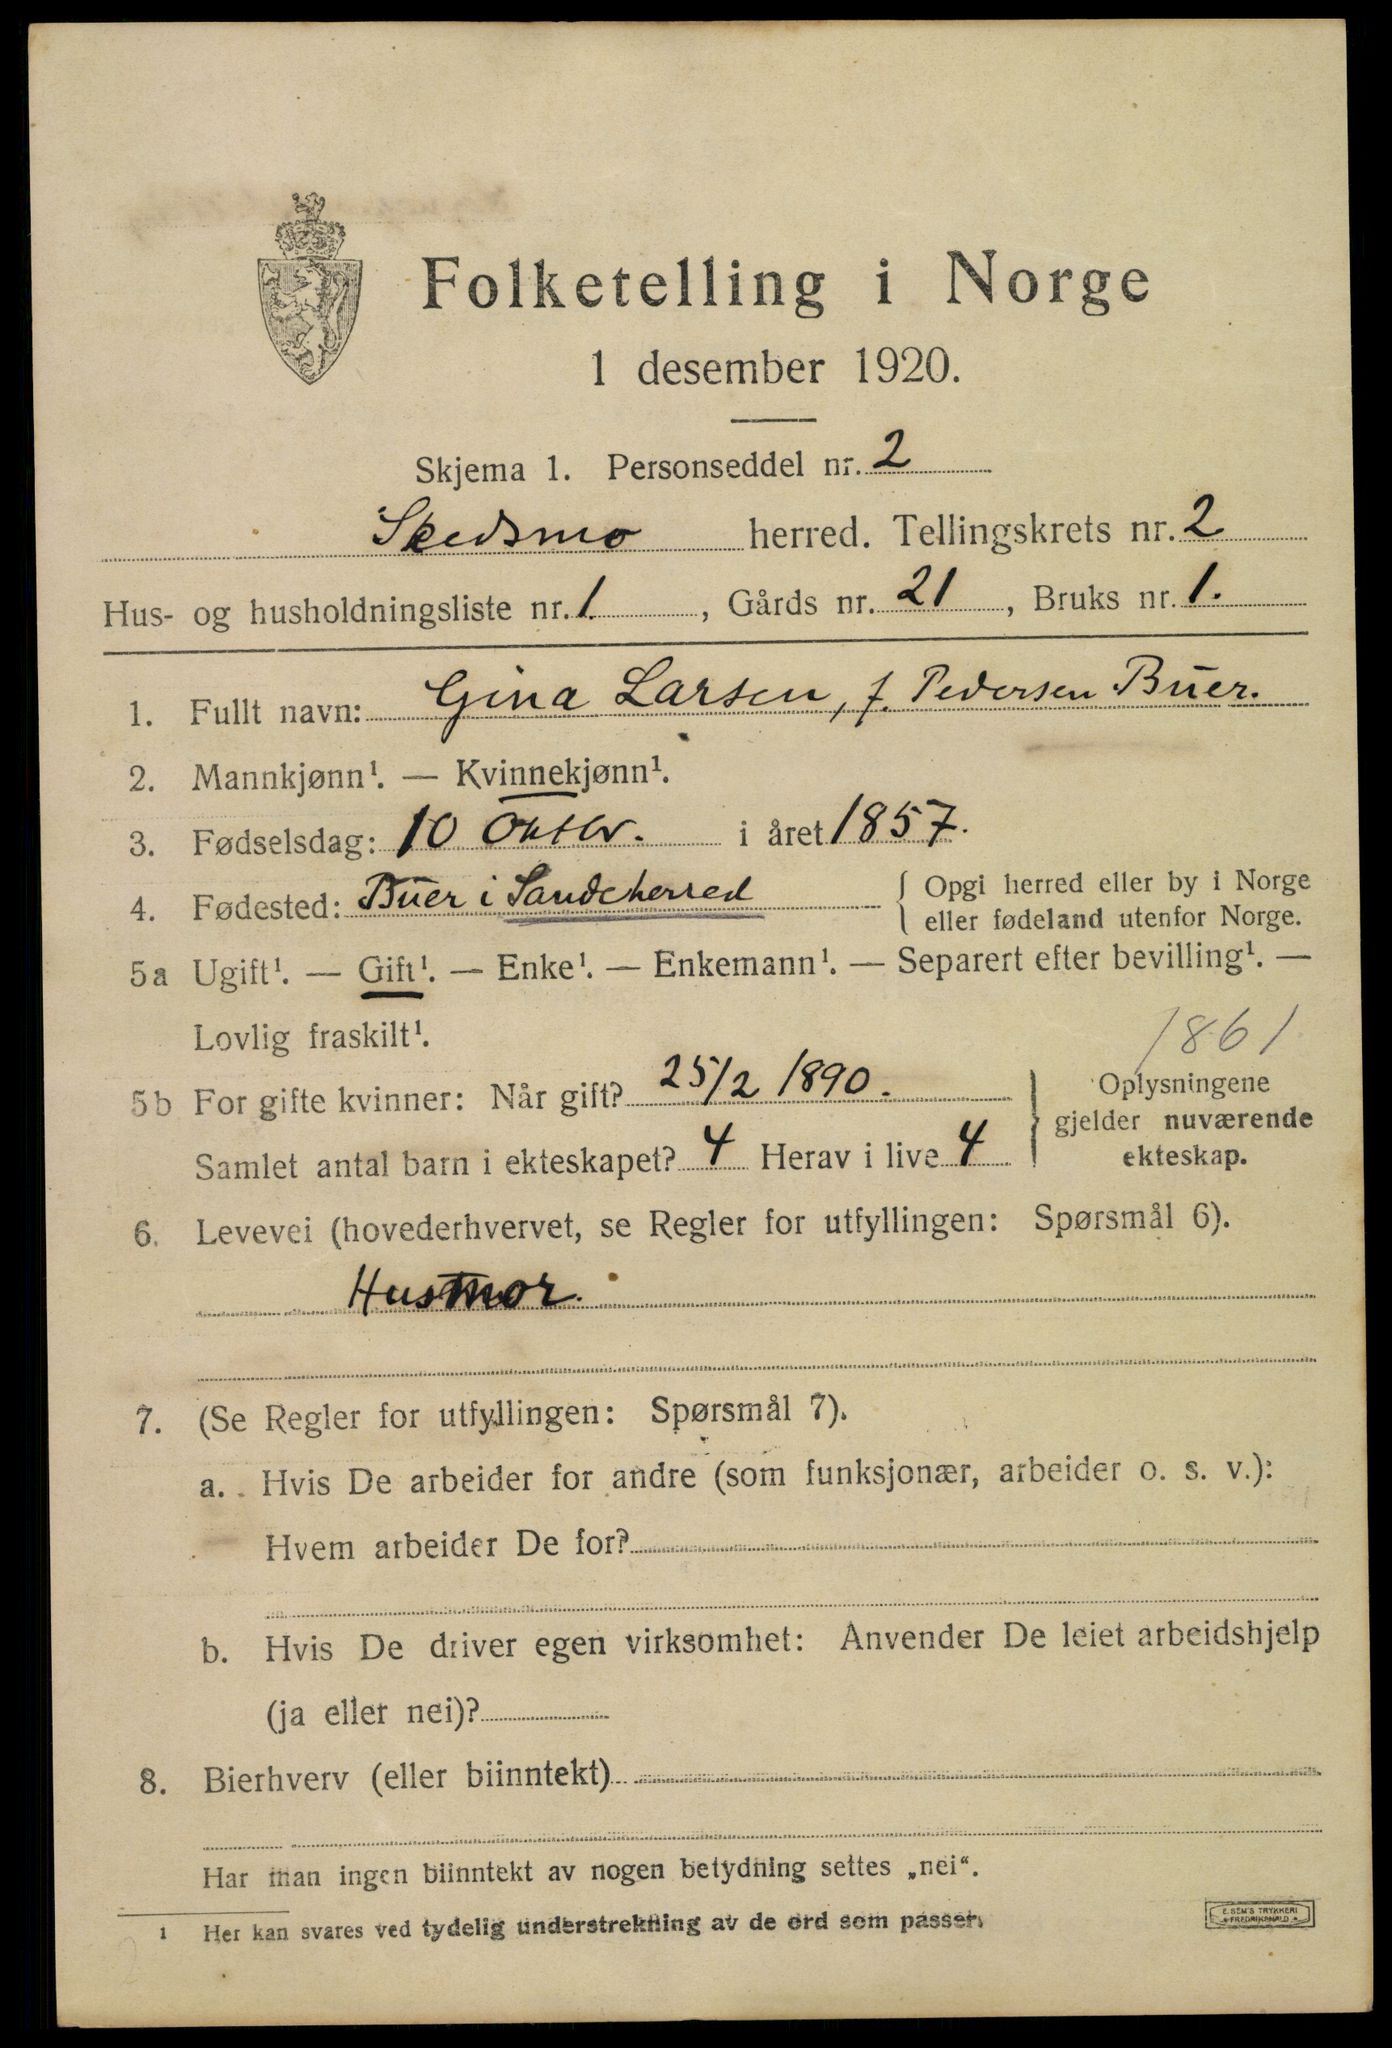 Folketelling i Norge
1 desember 1920.
Skjema 1. Personseddel nr. 2
Skedsmo herred. Tellingskrets nr. 2
Hus- og husholdningsliste nr. 1, Gårds nr. 21, Bruks nr. 1.
1. Fullt navn: Gina Larsen, f. Pedersen Buer.
2. Mannkjønn¹. — Kvinnekjønn¹.
3. Fødselsdag: 10 Oktbr. i året 1857.
4. Fødested: Buer i Sandeherred { Opgi herred eller by i Norge
eller fødeland utenfor Norge.
5a Ugift¹. — Gift¹. — Enke¹. — Enkemann¹. — Separert efter bevilling¹. —
Lovlig fraskilt¹.
1861
5b For gifte kvinner: Når gift? 25/2 1890. } Oplysningene
gjelder nuværende
Samlet antal barn i ekteskapet? 4 Herav i live 4 ekteskap.
6. Levevei (hovederhvervet, se Regler for utfyllingen: Spørsmål 6).
Husmor.
7. (Se Regler for utfyllingen: Spørsmål 7).
a. Hvis De arbeider for andre (som funksjonær, arbeider o. s. v.):
Hvem arbeider De for?
b. Hvis De driver egen virksomhet: Anvender De leiet arbeidshjelp
(ja eller nei)?
8. Bierhverv (eller biinntekt)
Har man ingen biinntekt av nogen betydning settes „nei“.
¹ Her kan svares ved tydelig understrekning av de ord som passer.
E. SEM'S TRYKKERI
FREDRIKSHALD